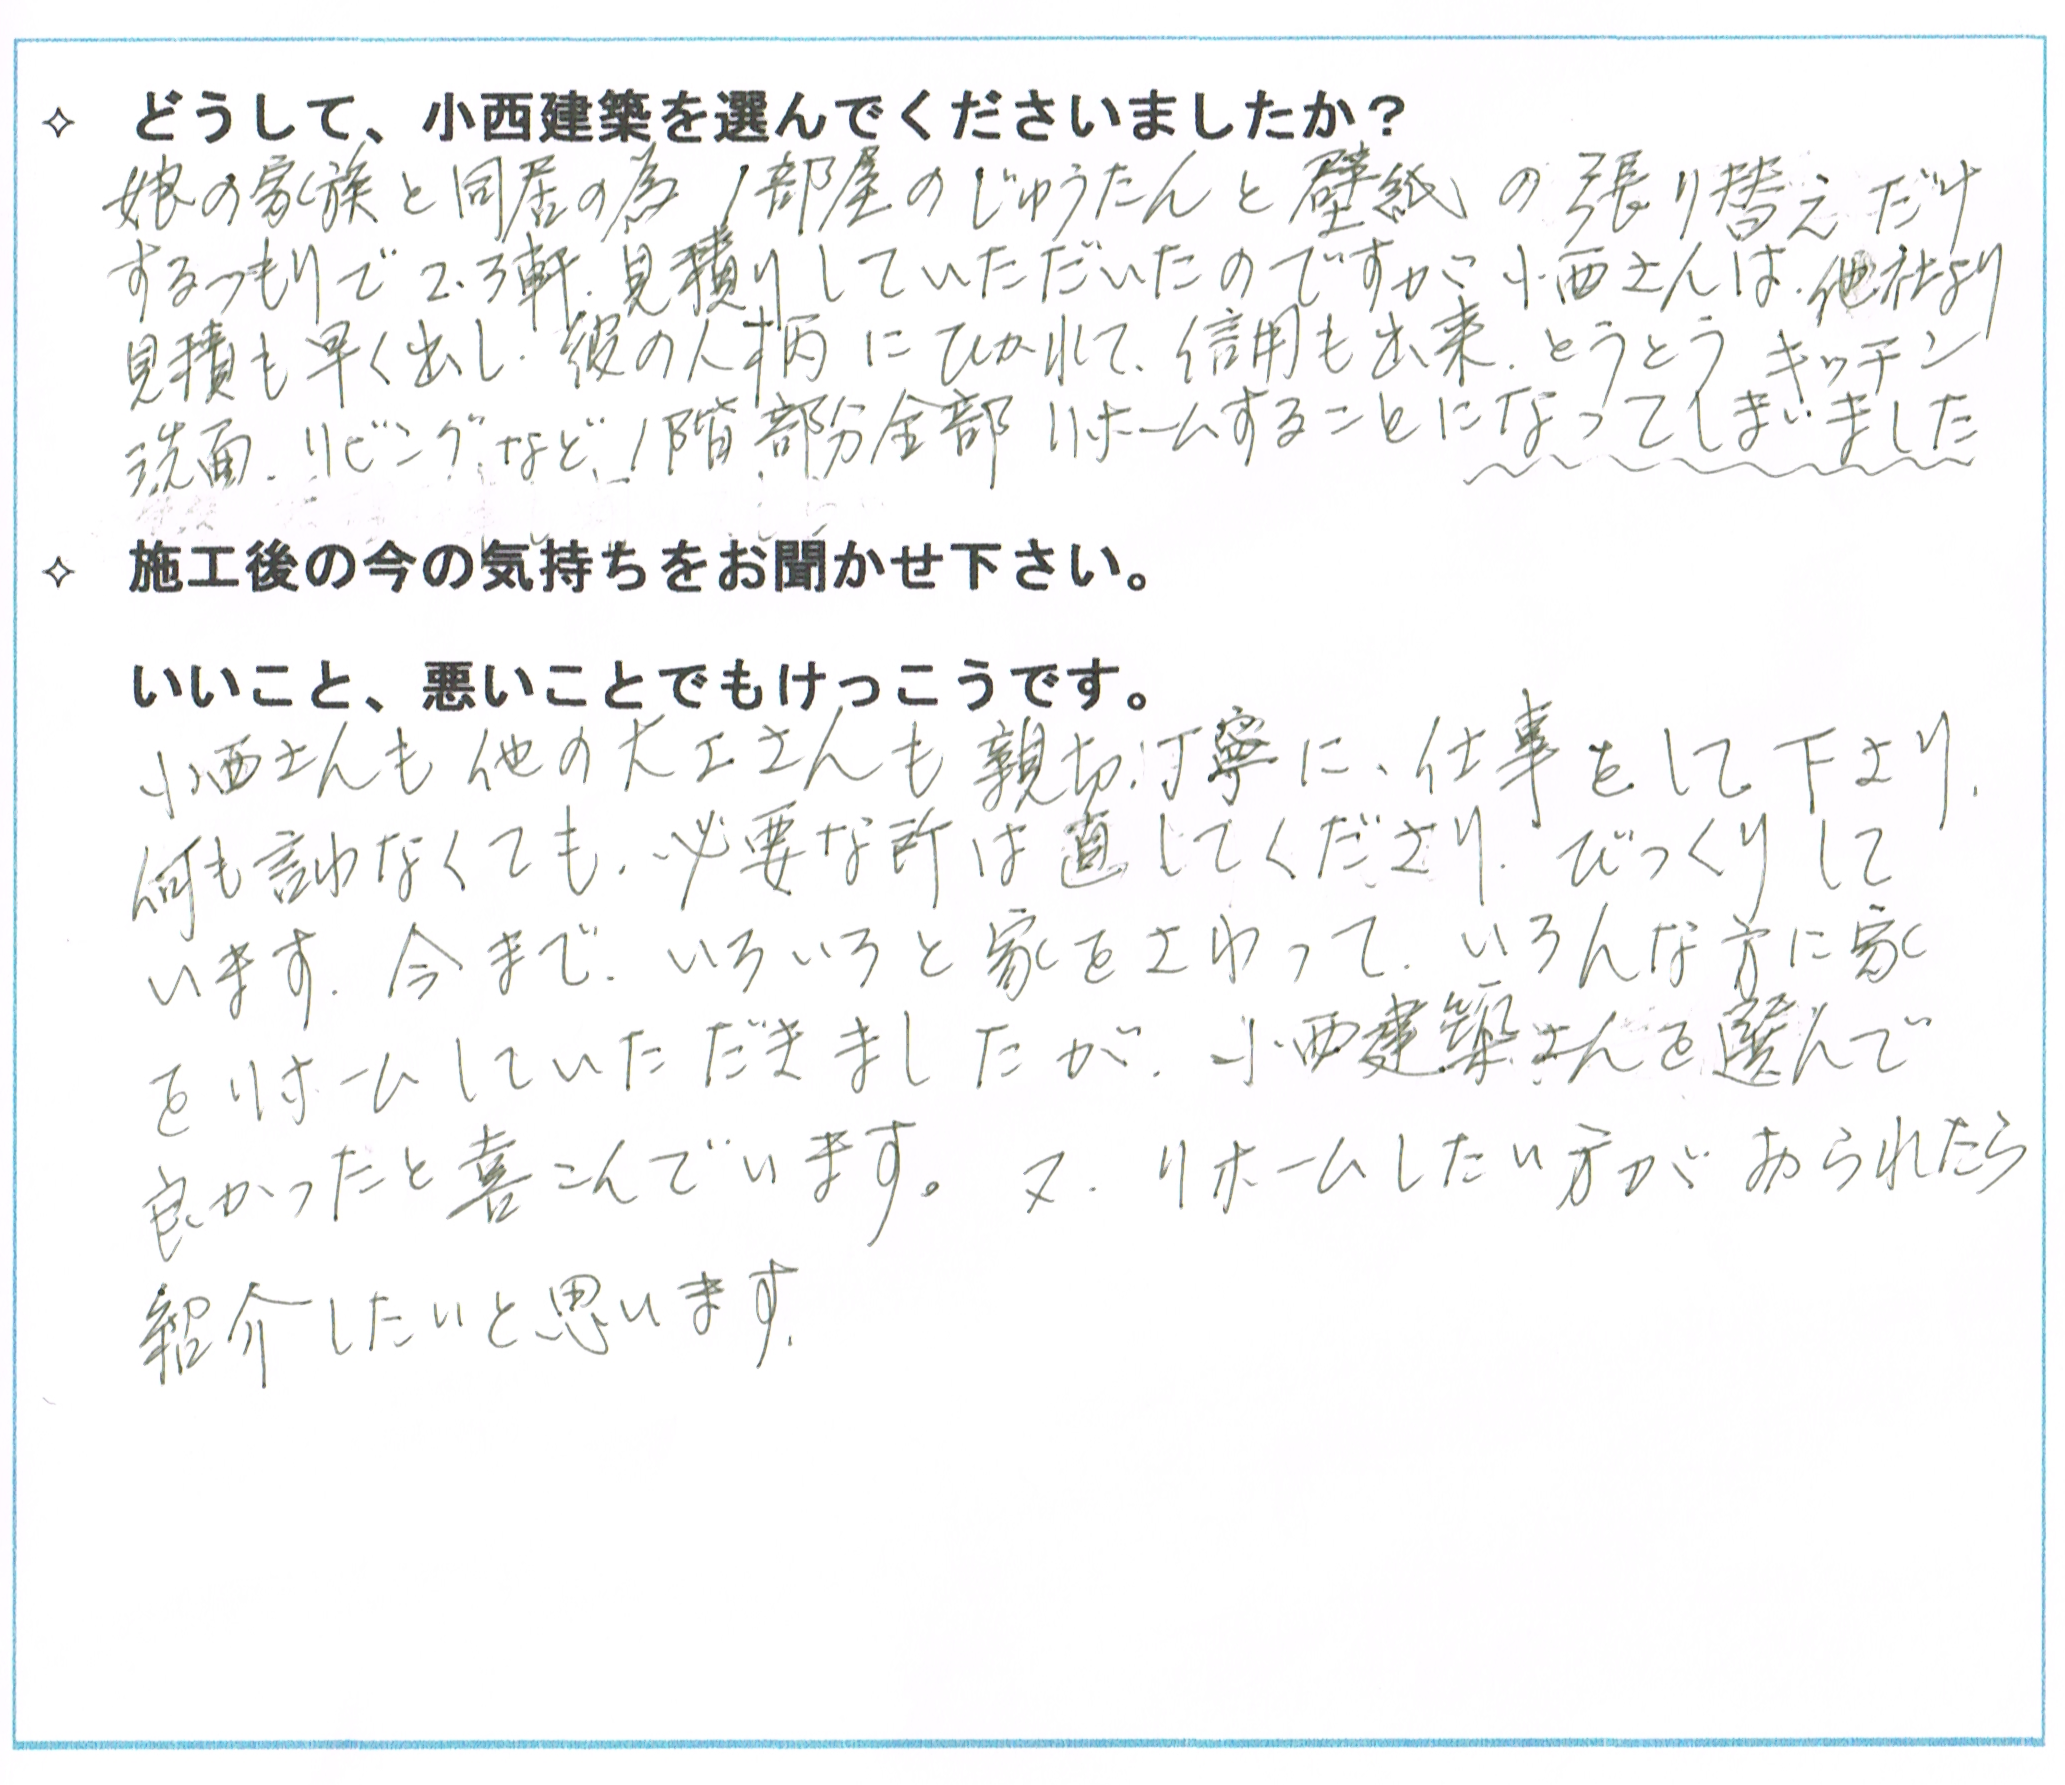 ✧ どうして、小西建築を選んでくださいましたか？
娘の家族と同居の為1部屋のじゅうたんと壁紙の張り替えだけ
するつもりで2、3軒、見積りしていただいたのですが小西さんは、他社より
見積も早く出し、彼の人柄にひかれて、信用も出来、とうとうキッチン
洗面、リビング、など、1階部分全部リホームすることになってしまいました
✧ 施工後の今の気持ちをお聞かせ下さい。
いいこと、悪いことでもけっこうです。
小西さんも他の大工さんも親切、丁寧に、仕事をして下さり、
何も言わなくても、必要な所は直してくださり、びっくりして
います。今まで、いろいろと家をさわって、いろんな方に家
をリホームしていただきましたが、小西建築さんを選んで
良かったと喜こんでいます。又、リホームしたい方があられたら
紹介したいと思います。